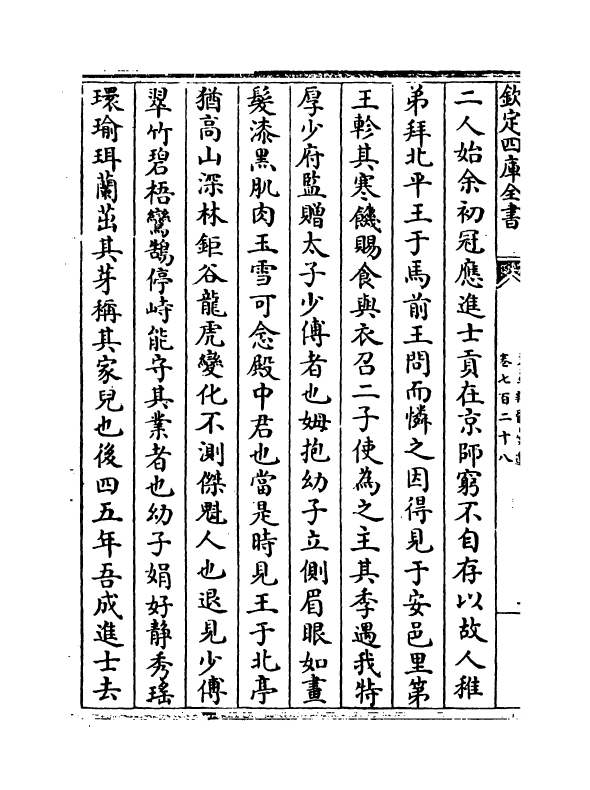 欽定四庫全書
卷七百二十八
二人始余初冠應進士貢在京師窮不自存以故人稚
弟拜北平王于馬前王問而憐之因得見于安邑里第
王軫其寒饑賜食與衣召二子使為之主其季遇我特
厚少府監贈太子少傅者也姆抱幼子立側眉眼如畫
髮漆黑肌肉玉雪可念殿中君也當是時見王于北亭
猶高山深林鉅谷龍虎變化不測傑魁人也退見少傅
翠竹碧梧鸞鵠停峙能守其業者也幼子娟好静秀瑤
環瑜珥蘭茁其芽稱其家兒也後四五年吾成進士去